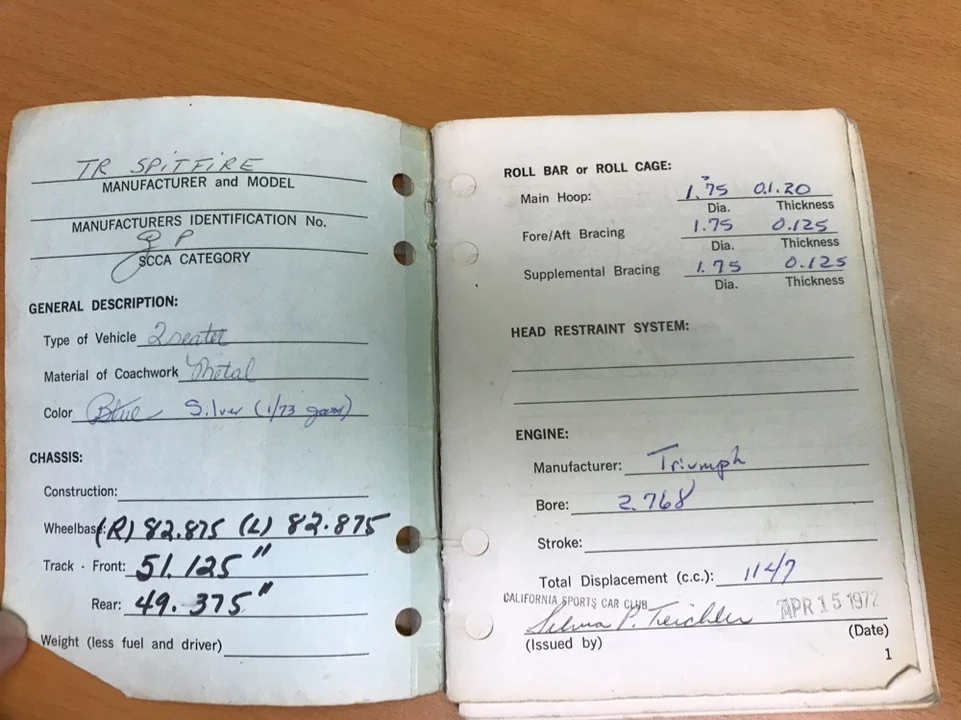 TR SPITFIRE
MANUFACTURER and MODEL
MANUFACTURERS IDENTIFICATION No.
GP
SCCA CATEGORY
GENERAL DESCRIPTION:
Type of Vehicle 2 seater
Material of Coachwork Metal
Color Blue Silver (1/73
CHASSIS:
Construction:
Wheelbase: (R) 82.875 (L) 82.875
Track - Front: 51.125"
Rear: 49.375"
Weight (less fuel and driver)
ROLL BAR or ROLL CAGE:
Main Hoop: 1.75 0.120
Dia. Thickness
Fore/Aft Bracing 1.75 0.125
Dia. Thickness
Supplemental Bracing 1.75 0.125
Dia. Thickness
HEAD RESTRAINT SYSTEM:
ENGINE:
Manufacturer: Triumph
Bore: 2.768
Stroke:
Total Displacement (c.c.): 1147
CALIFORNIA SPORTS CAR CLUB
P. Teichler APR 15 1972
(Issued by) (Date)
1